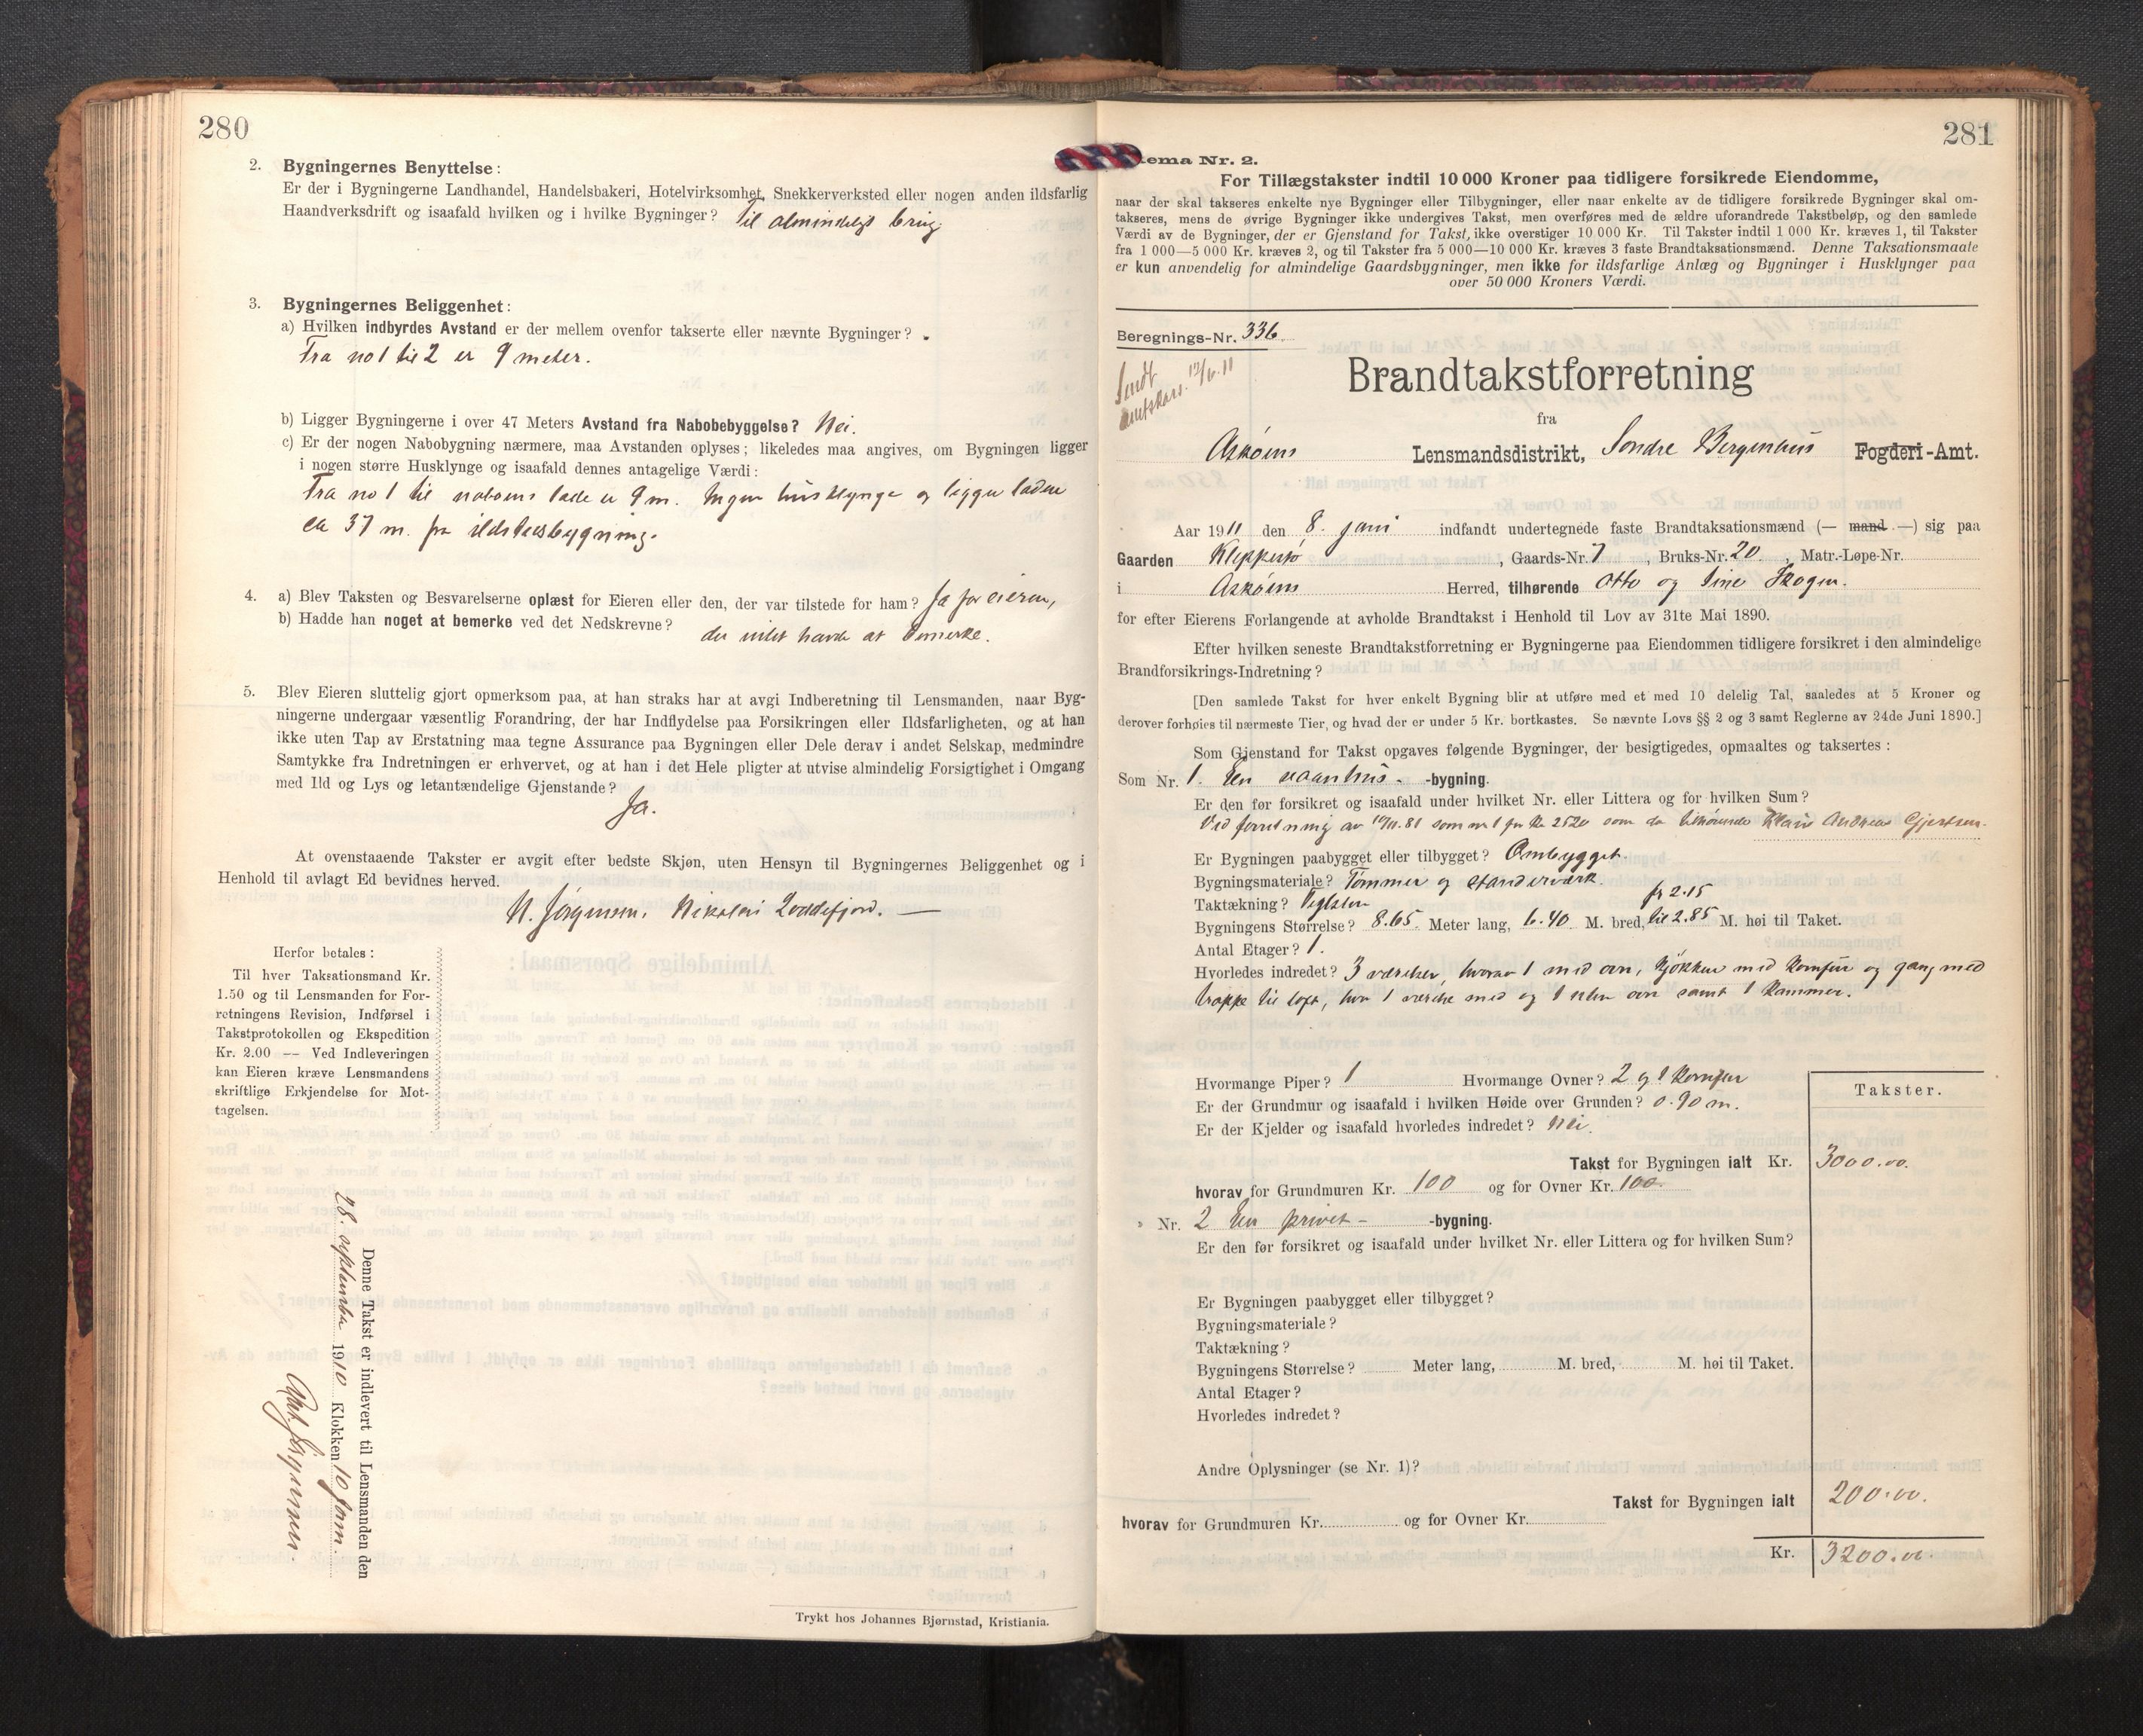 280
2. Bygningernes Benyttelse:
Er der i Bygningerne Landhandel, Handelsbakeri, Hotelvirksomhet, Snekkerverksted eller nogen anden ildsfarlig
Haandverksdrift og isaafald hvilken og i hvilke Bygninger? Til almindeligt brug
3. Bygningernes Beliggenhet:
a) Hvilken indbyrdes Avstand er der mellem ovenfor takserte eller nævnte Bygninger?
Fra no 1 til 2 er 9 meter.
b) Ligger Bygningerne i over 47 Meters Avstand fra Nabobebyggelse? Nei.
c) Er der nogen Nabobygning nærmere, maa Avstanden oplyses; likeledes maa angives, om Bygningen ligger
i nogen større Husklynge og isaafald dennes antagelige Værdi:
Fra no 1 til naboens lade er 9 m. Ingen husklynge og ligger laden
ca 37 m. fra ildstedsbygning.
4. a) Blev Taksten og Besvarelserne oplæst for Eieren eller den, der var tilstede for ham? Ja for eieren,
b) Hadde han noget at bemerke ved det Nedskrevne? der intet havde at bemerke.
5. Blev Eieren sluttelig gjort opmerksom paa, at han straks har at avgi Indberetning til Lensmanden, naar Byg-
ningerne undergaar væsentlig Forandring, der har Indflydelse paa Forsikringen eller Ildsfarligheten, og at han
ikke uten Tap av Erstatning maa tegne Assurance paa Bygningen eller Dele derav i andet Selskap, medmindre
Samtykke fra Indretningen er erhvervet, og at han i det Hele pligter at utvise almindelig Forsigtighet i Omgang
med Ild og Lys og letantændelige Gjenstande?
Ja.
At ovenstaaende Takster er avgit efter bedste Skjøn, uten Hensyn til Bygningernes Beliggenhet og i
Henhold til avlagt Ed bevidnes herved.
N. Jørgensen. Nikolai Loddefjord.
Herfor betales:
Til hver Taksationsmand Kr.
1.50 og til Lensmanden for For-
retningens Revision, Indførsel i
Takstprotokollen og Ekspedition
Kr. 2.00 — Ved Indleveringen
kan Eieren kræve Lensmandens
skriftlige Erkjendelse for Mot-
tagelsen.
Denne Takst er indlevert til Lensmanden den
28. september 1910 Klokken 10 form.
Jørgensen
Trykt hos Johannes Bjørnstad, Kristiania.
281
ema Nr. 2.
For Tillægstakster indtil 10 000 Kroner paa tidligere forsikrede Eiendomme,
naar der skal takseres enkelte nye Bygninger eller Tilbygninger, eller naar enkelte av de tidligere forsikrede Bygninger skal om-
takseres, mens de øvrige Bygninger ikke undergives Takst, men overføres med de ældre uforandrede Takstbeløp, og den samlede
Værdi av de Bygninger, der er Gjenstand for Takst, ikke overstiger 10 000 Kr. Til Takster indtil 1 000 Kr. kræves 1, til Takster
fra 1 000—5 000 Kr. kræves 2, og til Takster fra 5 000—10 000 Kr. kræves 3 faste Brandtaksationsmænd. Denne Taksationsmaate
er kun anvendelig for almindelige Gaardsbygninger, men ikke for ildsfarlige Anlæg og Bygninger i Husklynger paa
over 50 000 Kroners Værdi.
Beregnings-Nr. 336.
Sendt
amtskass. 12/6.11
Brandtakstforretning
fra
Askøens Lensmandsdistrikt, Søndre Bergenhus Fogderi-Amt.
Aar 1911 den 8. juni indfandt undertegnede faste Brandtaksationsmænd (— mand —) sig paa
Gaarden Kleppestø, Gaards-Nr. 7, Bruks-Nr. 20, Matr.-Løpe-Nr.
i Askøens Herred, tilhørende Otto og Sine Skogen.
for efter Eierens Forlangende at avholde Brandtakst i Henhold til Lov av 31te Mai 1890.
Efter hvilken seneste Brandtakstforretning er Bygningerne paa Eiendommen tidligere forsikret i den almindelige
Brandforsikrings-Indretning?
[Den samlede Takst for hver enkelt Bygning blir at utføre med et med 10 delelig Tal, saaledes at 5 Kroner og
derover forhøies til nærmeste Tier, og hvad der er under 5 Kr. bortkastes. Se nævnte Lovs §§ 2 og 3 samt Reglerne av 24de Juni 1890.]
Som Gjenstand for Takst opgaves følgende Bygninger, der besigtigedes, opmaaltes og taksertes:
Som Nr. 1. En vaanhus- -bygning.
Er den før forsikret og isaafald under hvilket Nr. eller Littera og for hvilken Sum?
Ved forretning av 81 som nr 1 for kr 2520 som da tilhørende Andreas Gjertsen.
Er Bygningen paabygget eller tilbygget? Ombygget.
Bygningsmateriale? Tømmer og standerværk.
Taktækning? Teglsten
Bygningens Størrelse? 8.65 Meter lang, 6.40 M. bred, fr 2.15 til 2.85 M. høi til Taket.
Antal Etager? 1.
Hvorledes indredet? 3 værelser, hvorav 1 med ovn, kjøkken med komfur og gang med
trappe til loft, hvor 1 værelse med og 1 uten ovn samt 1 kammer.
Hvormange Piper? 1 Hvormange Ovner? 2 og 1 komfur
Er der Grundmur og isaafald i hvilken Høide over Grunden? 0.90 m.
Er der Kjelder og isaafald hvorledes indredet? Nei.
Takster.
Takst for Bygningen ialt Kr. 3000.00.
hvorav for Grundmuren Kr. 100 og for Ovner Kr. 100
» Nr. 2 En privet- -bygning.
Er den før forsikret og isaafald under hvilket Nr. eller Littera og for hvilken Sum?
Er Bygningen paabygget eller tilbygget?
Bygningsmateriale?
Taktækning?
Bygningens Størrelse? Meter lang, M. bred, M. høi til Taket.
Antal Etager?
Hvorledes indredet?
Andre Oplysninger (se Nr. 1)?
Takst for Bygningen ialt 200.00.
hvorav for Grundmuren Kr. og for Ovner Kr.
Kr. 3200.00.